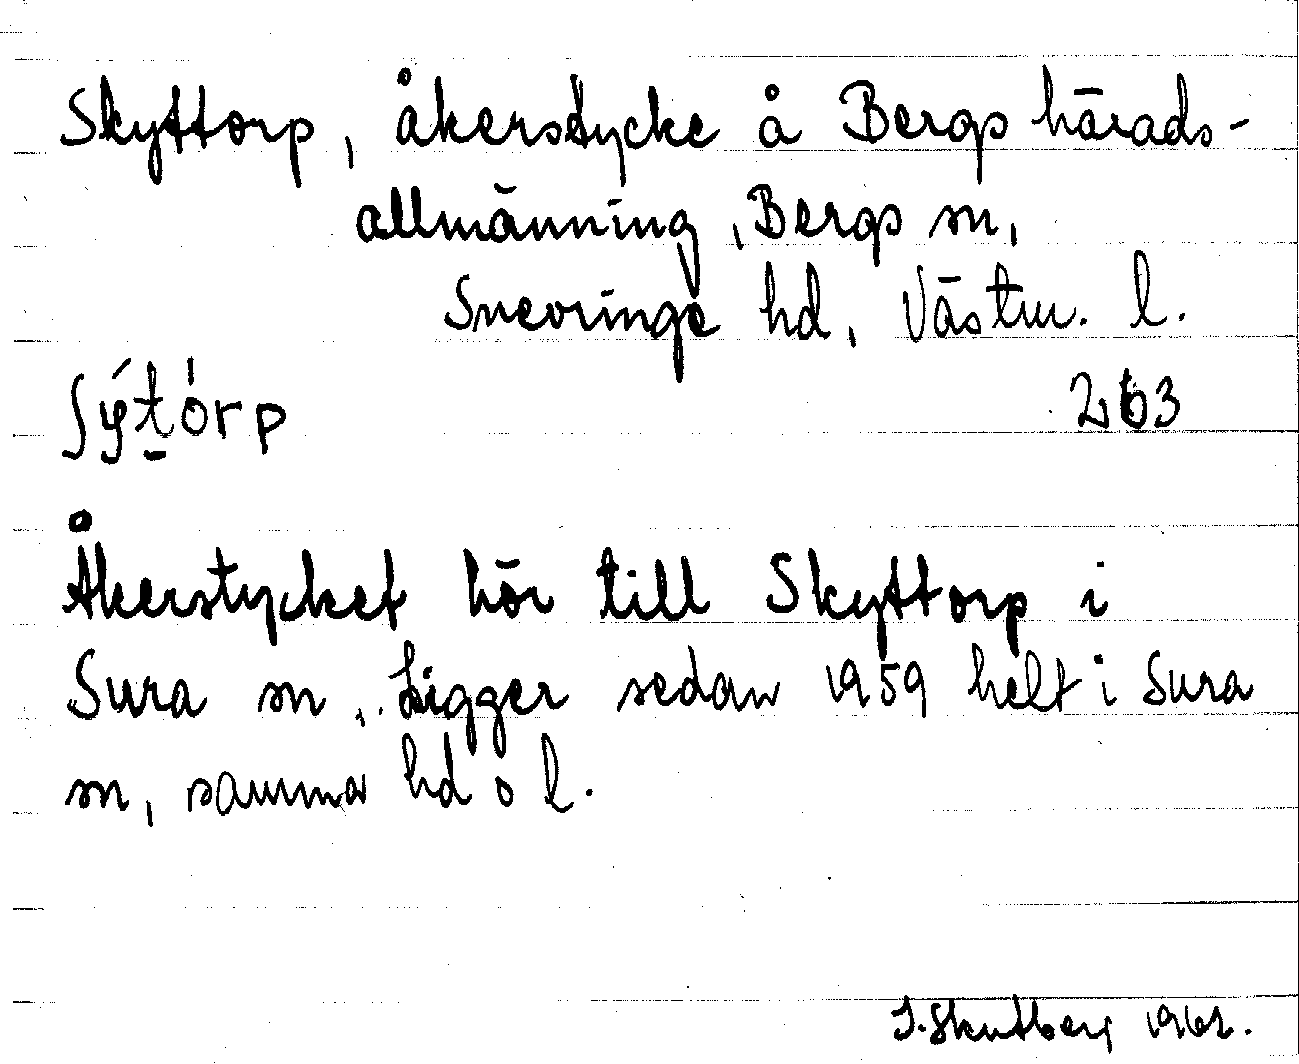 Skyttorp, åkerstycke å Bergs härads-
allmänning, Bergs sn,
Snevringe hd, Västm. l.
ʃýt̠órp 263
Åkerstycket hör till Skyttorp i
Sura sn. Ligger sedan 1959 helt i Sura
sn, samma hd o l.
1962.